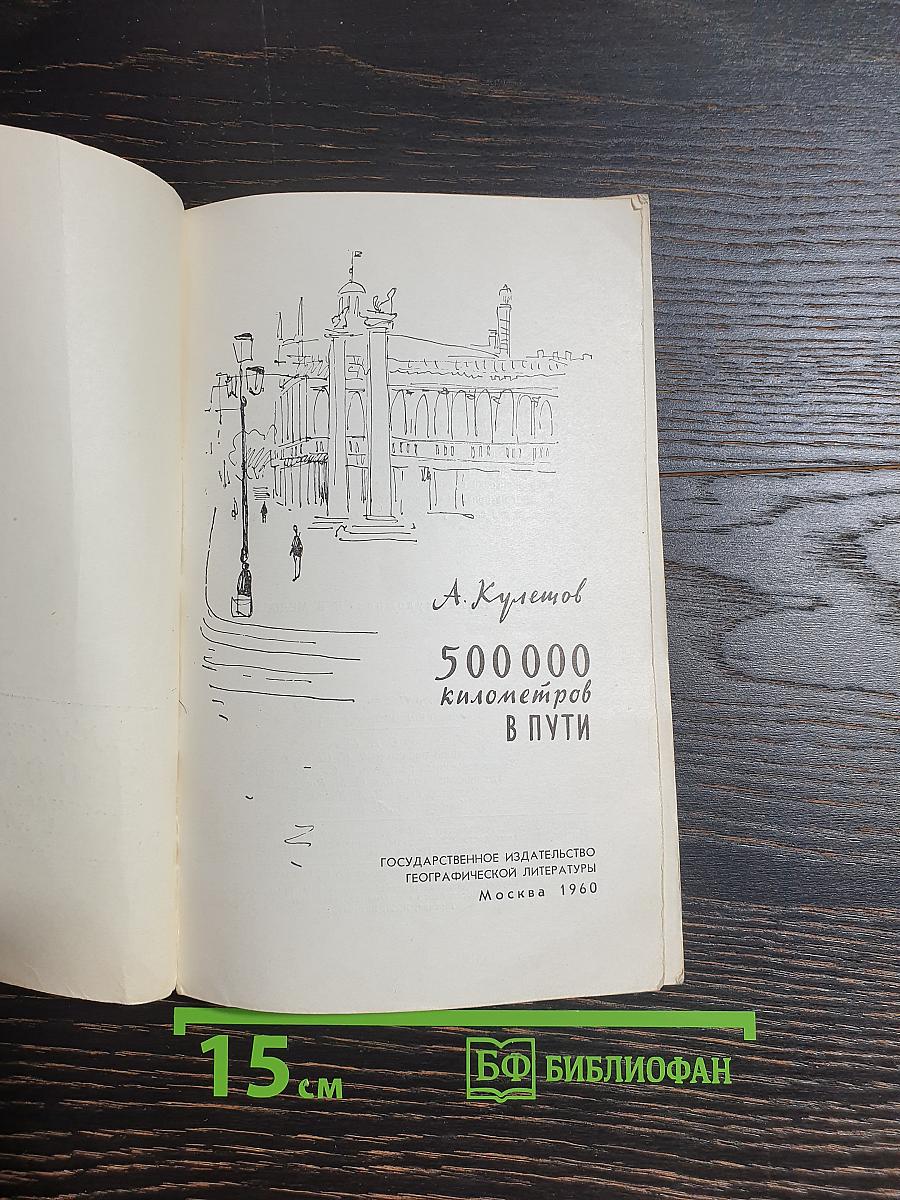 А. Кулешов
500 000
километров
В ПУТИ
ГОСУДАРСТВЕННОЕ ИЗДАТЕЛЬСТВО
ГЕОГРАФИЧЕСКОЙ ЛИТЕРАТУРЫ
Москва 1960
15 см
БФ БИБЛИОФАН